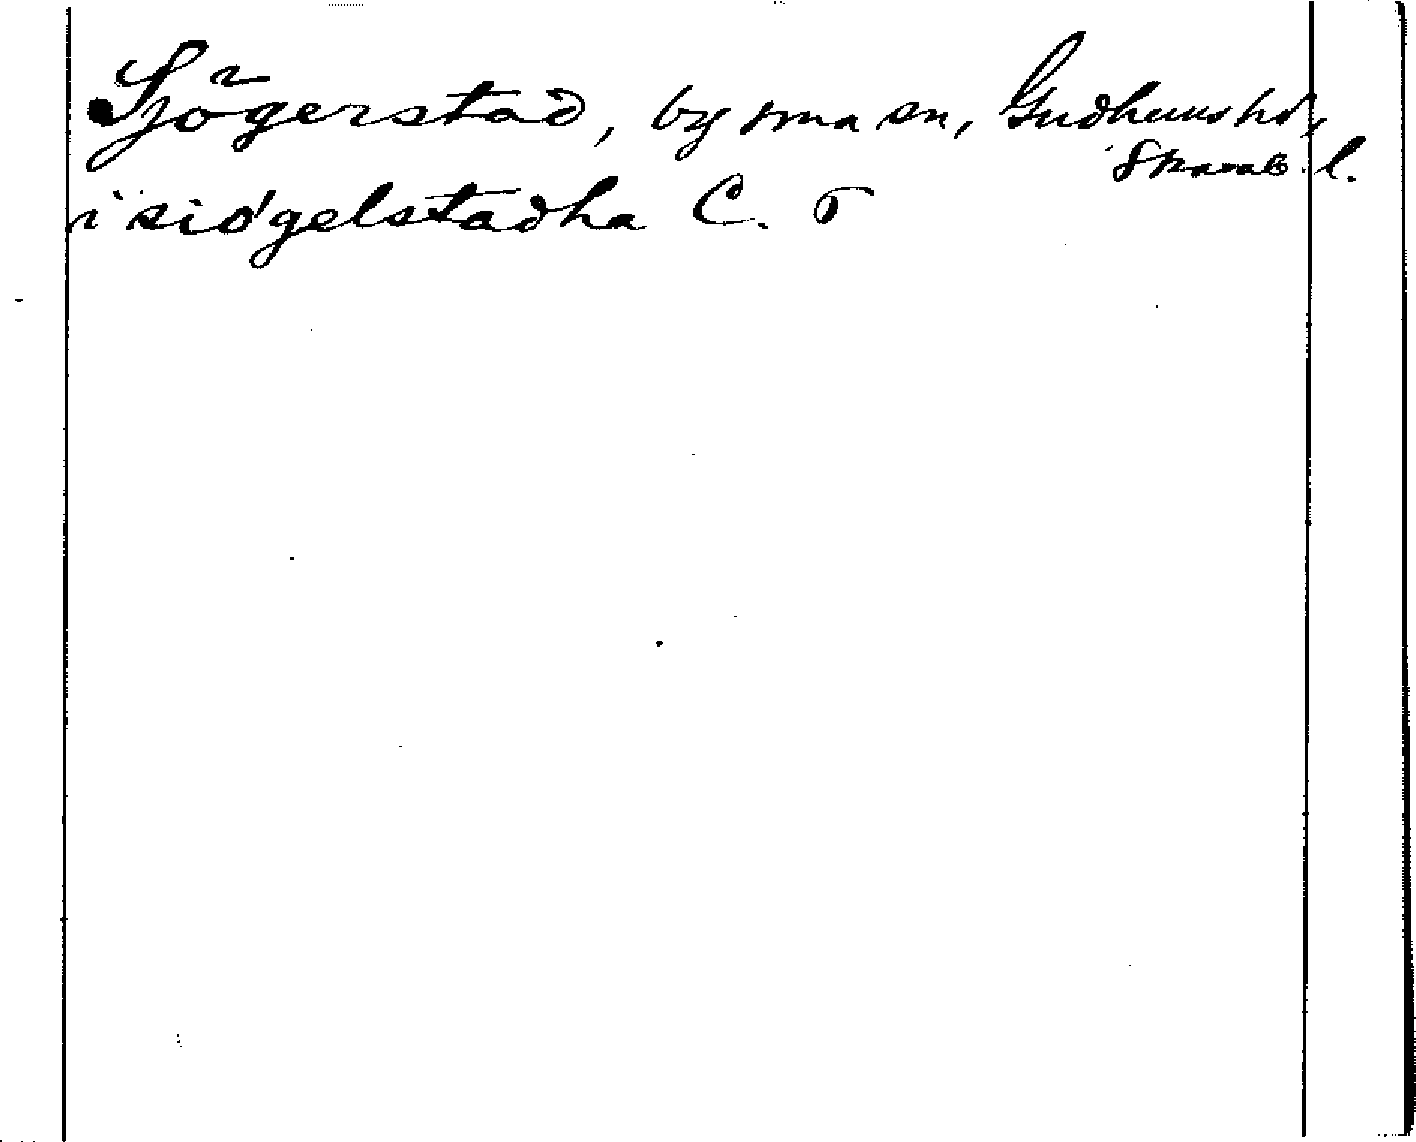 Sjögerstad, by sma sn, Gudhems hd,
Skarab. l.
i siøgelstadha C. 5